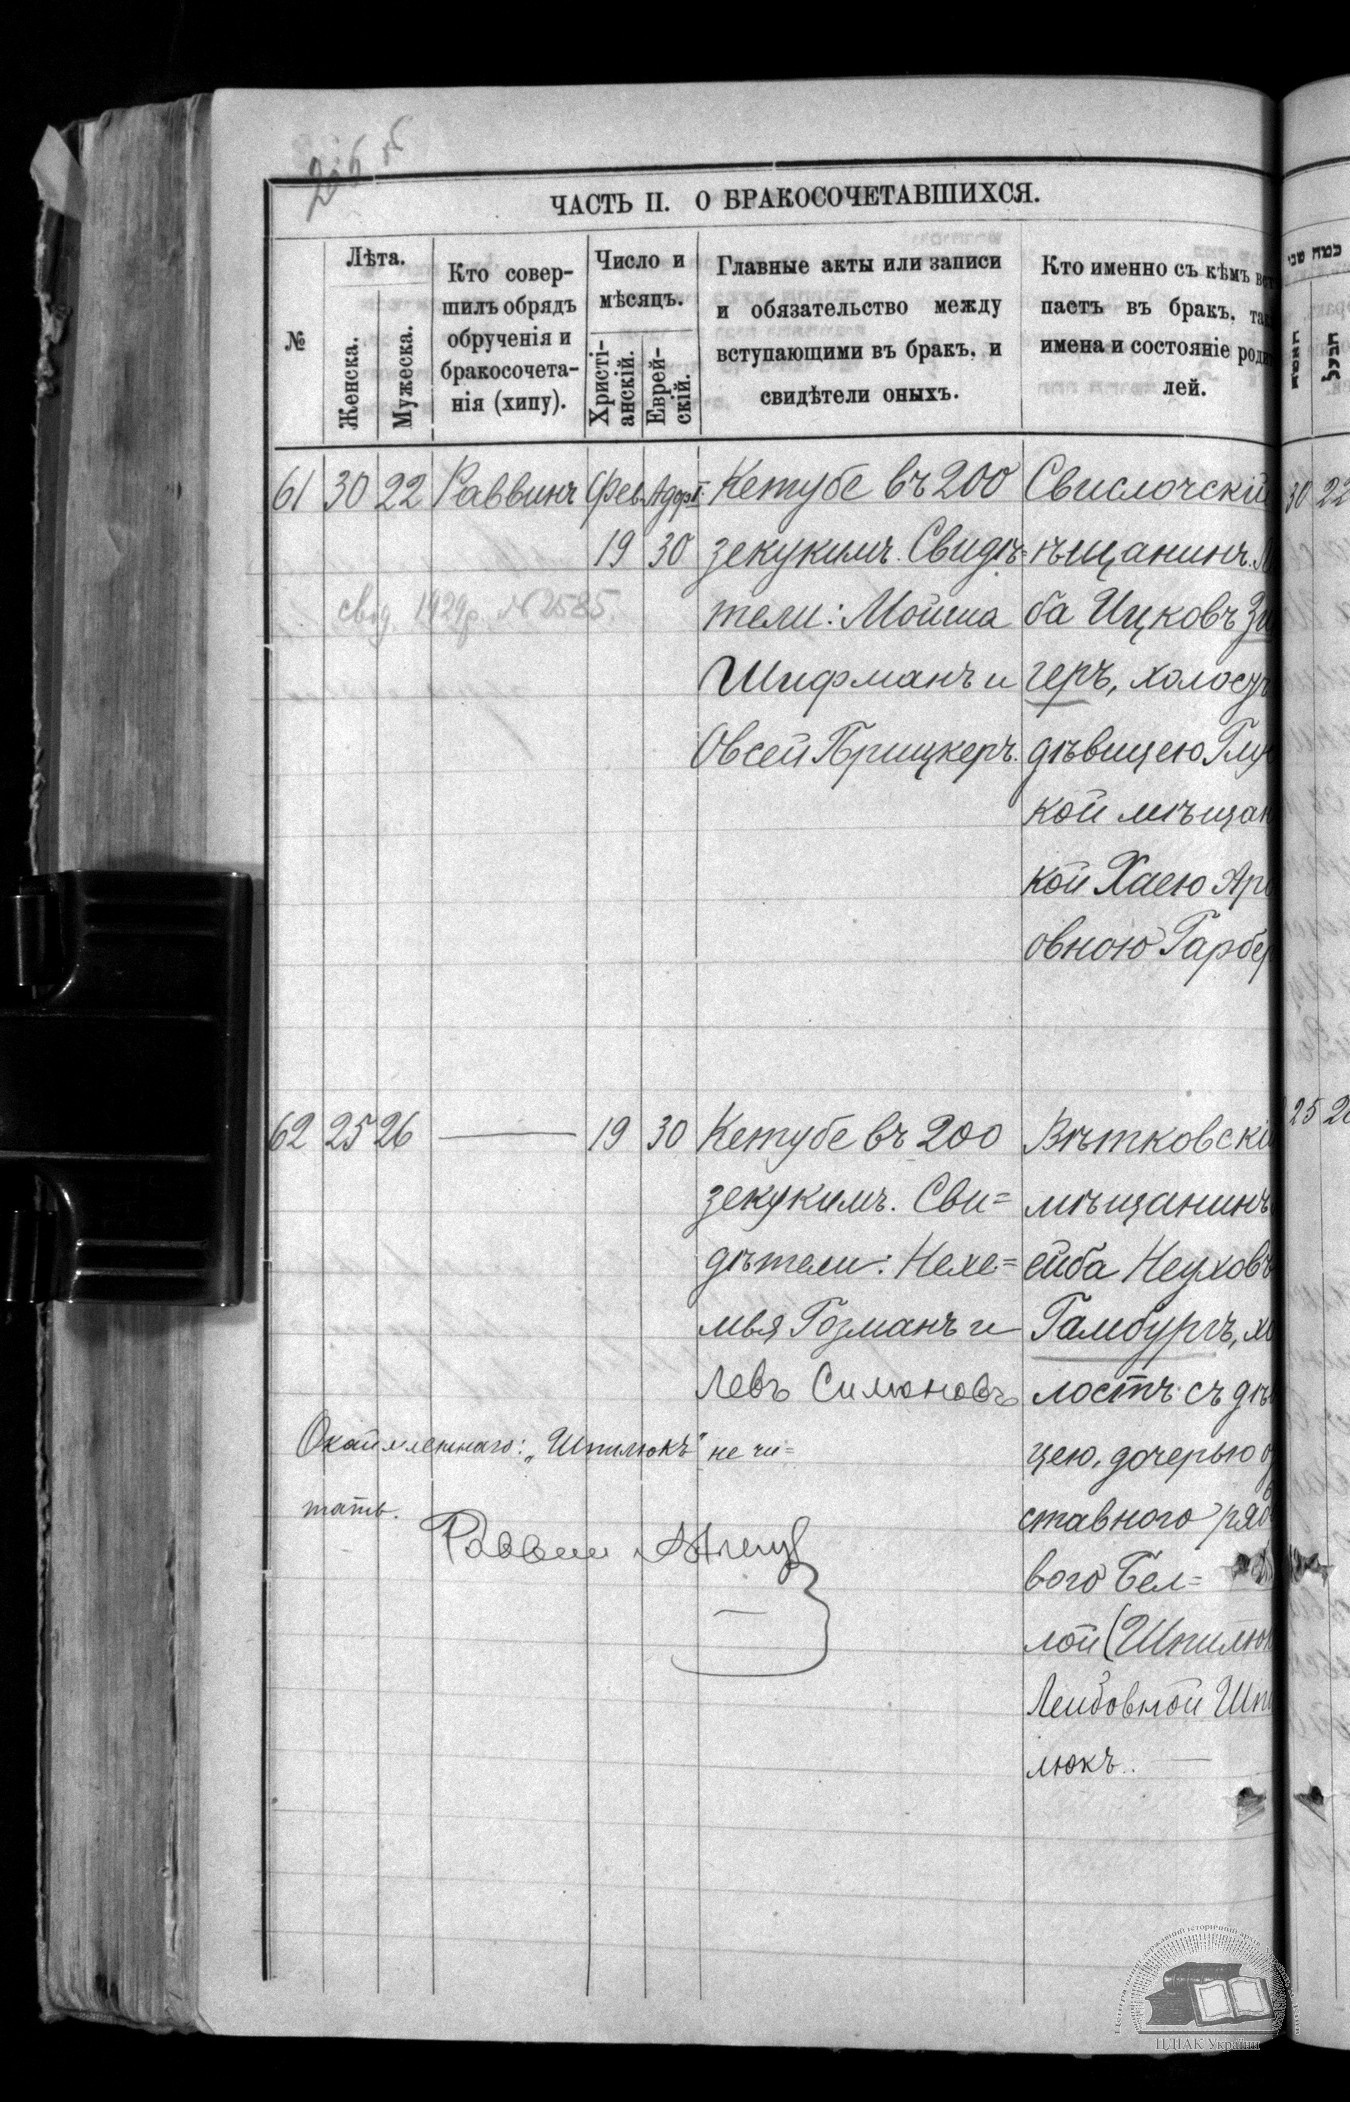 ЧАСТЬ II. О БРАКОСОЧЕТАВШИХСЯ.
№
Лѣта.
Женска.
Мужеска.
Кто совер-
шилъ обрядъ
обрученія и
бракосочета-
нія (хипу).
Число и
мѣсяцъ.
Христі-
анскій.
Еврей-
скій.
Главные акты или записи
и обязательство между
вступающими въ бракъ, и
свидѣтели оныхъ.
Кто именно съ кѣмъ вст
паетъ въ бракъ, та
имена и состояніе роди
лей.
61 30 22 Раввинъ Фев. Адаръ I.
19 30
Кетубе въ 200
зекукимъ. Свидѣ=
тели: Мойша
Шифманъ и
Овсей Брицкеръ.
Свислочскі
мѣщанинъ
ба Ицковъ Зи
геръ, холост
дѣвицею Глу
кой мѣщан
кой Хаею Аро
овною Гарбер
свод. 1929р. №2585.
62 25 26 19 30
Кетубе въ 200
зекукимъ. Сви=
дѣтели: Нехе=
мья Гозманъ и
Левъ Симоновъ
Вѣтковскі
мѣщанинъ
ейба Неуховъ
Гамбургъ, хо
лостъ съ дѣ
цею, дочерью о
ставного рядо
вого Бел=
лой (Шпилюк
Лейбовной Шпи
люкъ.
Окаймленнаго: „Шпилюкъ" не чи=
тать.
Раввин
30 22
25
ЦДІАК України